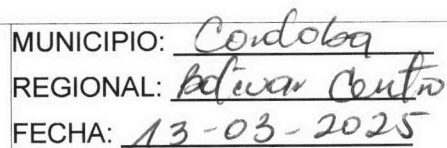 MUNICIPIO: Cordoba
REGIONAL: Bolivar Centro
FECHA: 13-03-2025